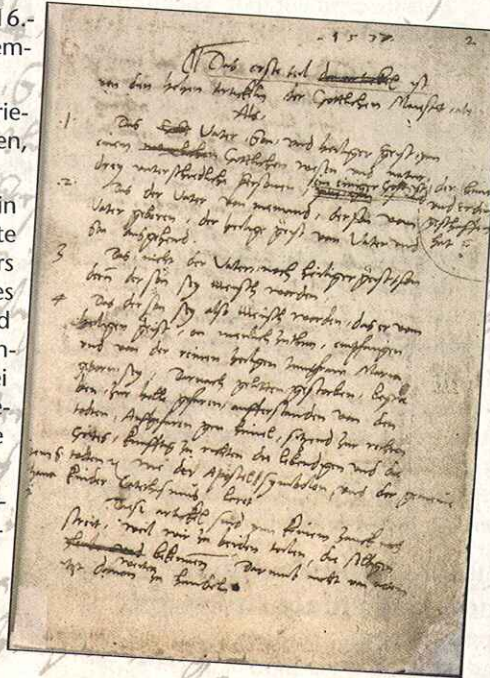 16.-
em-
rie-
en,
in
te
rs
es
d
n-
ei
e
1537 2
Das erste teil ist
von den hohen Artickeln der Gottlichen Maiestet, als
Als,
1 Das Vater, Son, und heiliger geist, ynn
einem Gottlichen wesen und natur,
drey unterschiedliche personen, ein einiger Gott ist, der himel
und erden
geschaffen
hat
2 Das der Vater von niemand, der Son vom
Vater geborn, der heilige geist vom Vater und
Son ausgehend
3 Das nicht der Vater, noch heiliger geist, son
dern der Son sey mensch worden
4 Das der Son sey also mensch worden, das er vom
heiligen geist, on menlich zuthun, empfangen
und von der reinen heiligen Jungfraw Maria
geborn sey, Darnach gelitten gestorben, begra
ben, zur helle gefaren, aufferstanden von den
todten, Auffgefaren gen himel, sitzend zur rechten
Gottes, kunfftig zu richten die lebendigen und die
todten wie der Apostel Symbolon, und der gemeine
kinder Catechismus leret
Diese artickel sind ynn keinem zanck noch
streit, weil wir zu beiden teilen, die selbigen
bekennen Darumb nicht von noten
itzt davon zu handeln